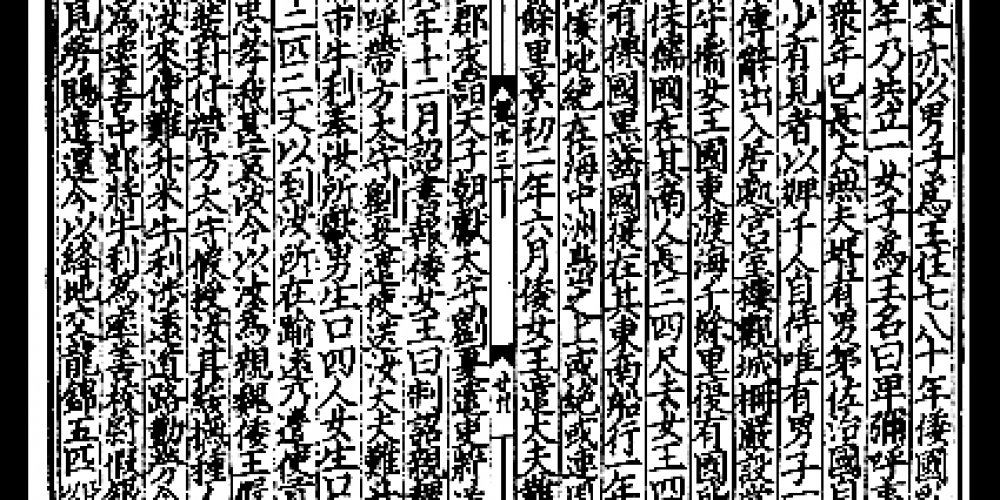 本亦以男子爲王住七八十年倭國
年乃共立一女子爲王名曰卑彌呼
衆年已長大無夫壻有男弟佐治國
少有見者以婢千人自侍唯有男子一
傳辭出入居處宮室樓觀城柵嚴設
女王國東渡海千餘里復有國
侏儒國在其南人長三四尺去女王四
有裸國黑齒國復在其東南船行一年
倭地絶在海中洲㠀之上或絶或連
餘里景初二年六月倭女王遣大夫難
郡求詣天子朝獻太守劉夏遣吏將送
年十二月詔書報倭女王曰制詔親魏
呼帶方太守劉夏遣使送汝大夫難
市牛利奉汝所獻男生口四人女生口
二匹二丈以到汝所在踰遠乃遣使
忠孝我甚哀汝今以汝爲親魏倭王
裝封付帶方太守假授汝其綏撫種
汝來使難升米牛利涉遠道路勤勞今
爲率善中郎將牛利爲率善校尉假銀
見勞賜遣還今以絳地交龍錦五匹